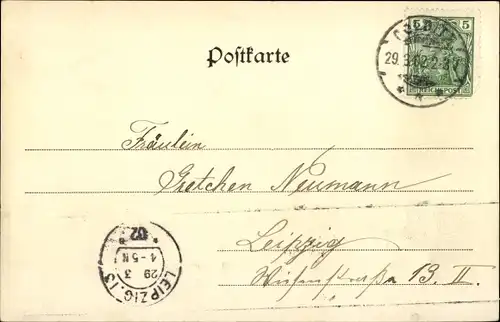 Postkarte
5
REICHSPOST
29.3.02.2-3
Fräulein
Gretchen Neumann
Leipzig
Wiesenstraße 13. II.
LEIPZIG.13
29
3
4-5 N
* 02 *